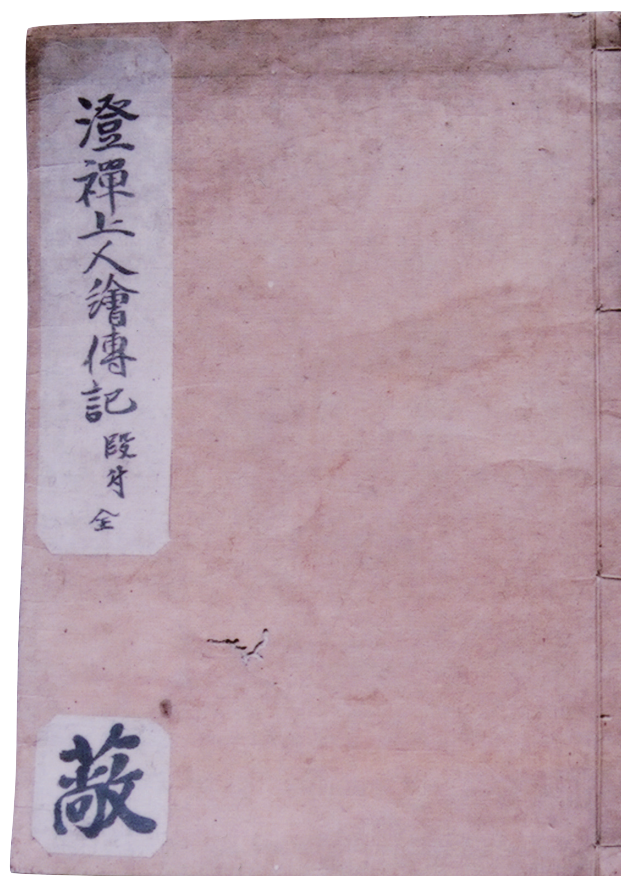 澄禪上人繪傳記 段才 全
蔽